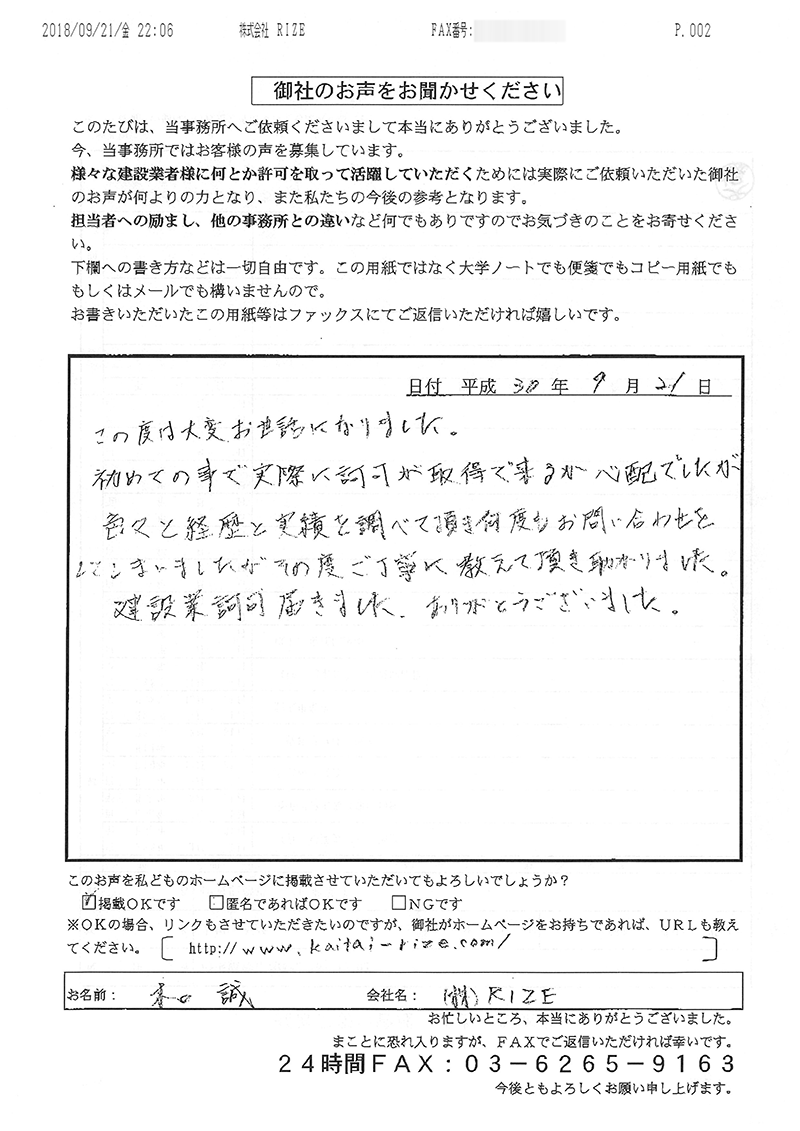 2018/09/21/金 22:06 株式会社 RIZE FAX番号: P.002
御社のお声をお聞かせください
このたびは、当事務所へご依頼くださいまして本当にありがとうございました。
今、当事務所ではお客様の声を募集しています。
様々な建設業者様に何とか許可を取って活躍していただくためには実際にご依頼いただいた御社
のお声が何よりの力となり、また私たちの今後の参考となります。
担当者への励まし、他の事務所との違いなど何でもありですのでお気づきのことをお寄せくださ
い。
下欄への書き方などは一切自由です。この用紙ではなく大学ノートでも便箋でもコピー用紙でも
もしくはメールでも構いませんので。
お書きいただいたこの用紙等はファックスにてご返信いただければ嬉しいです。
日付 平成 30 年 9 月 21 日
この度は大変お世話になりました。
初めての事で実際に許可が取得で来るか心配でしたが
色々と経歴と実績を調べて頂き何度もお問い合わせを
してしまいましたがその度ご丁寧に教えて頂き助かりました。
建設業許可届きました、ありがとうございました。
このお声を私どものホームページに掲載させていただいてもよろしいでしょうか?
☑掲載OKです □匿名であればOKです □NGです
※OKの場合、リンクもさせていただきたいのですが、御社がホームページをお持ちであれば、URLも教え
てください。 [ http://www.kaitai-rize.com/ ]
お名前: 誠 会社名: (株) RIZE
お忙しいところ、本当にありがとうございました。
まことに恐れ入りますが、FAXでご返信いただければ幸いです。
24時間FAX:03-6265-9163
今後ともよろしくお願い申し上げます。